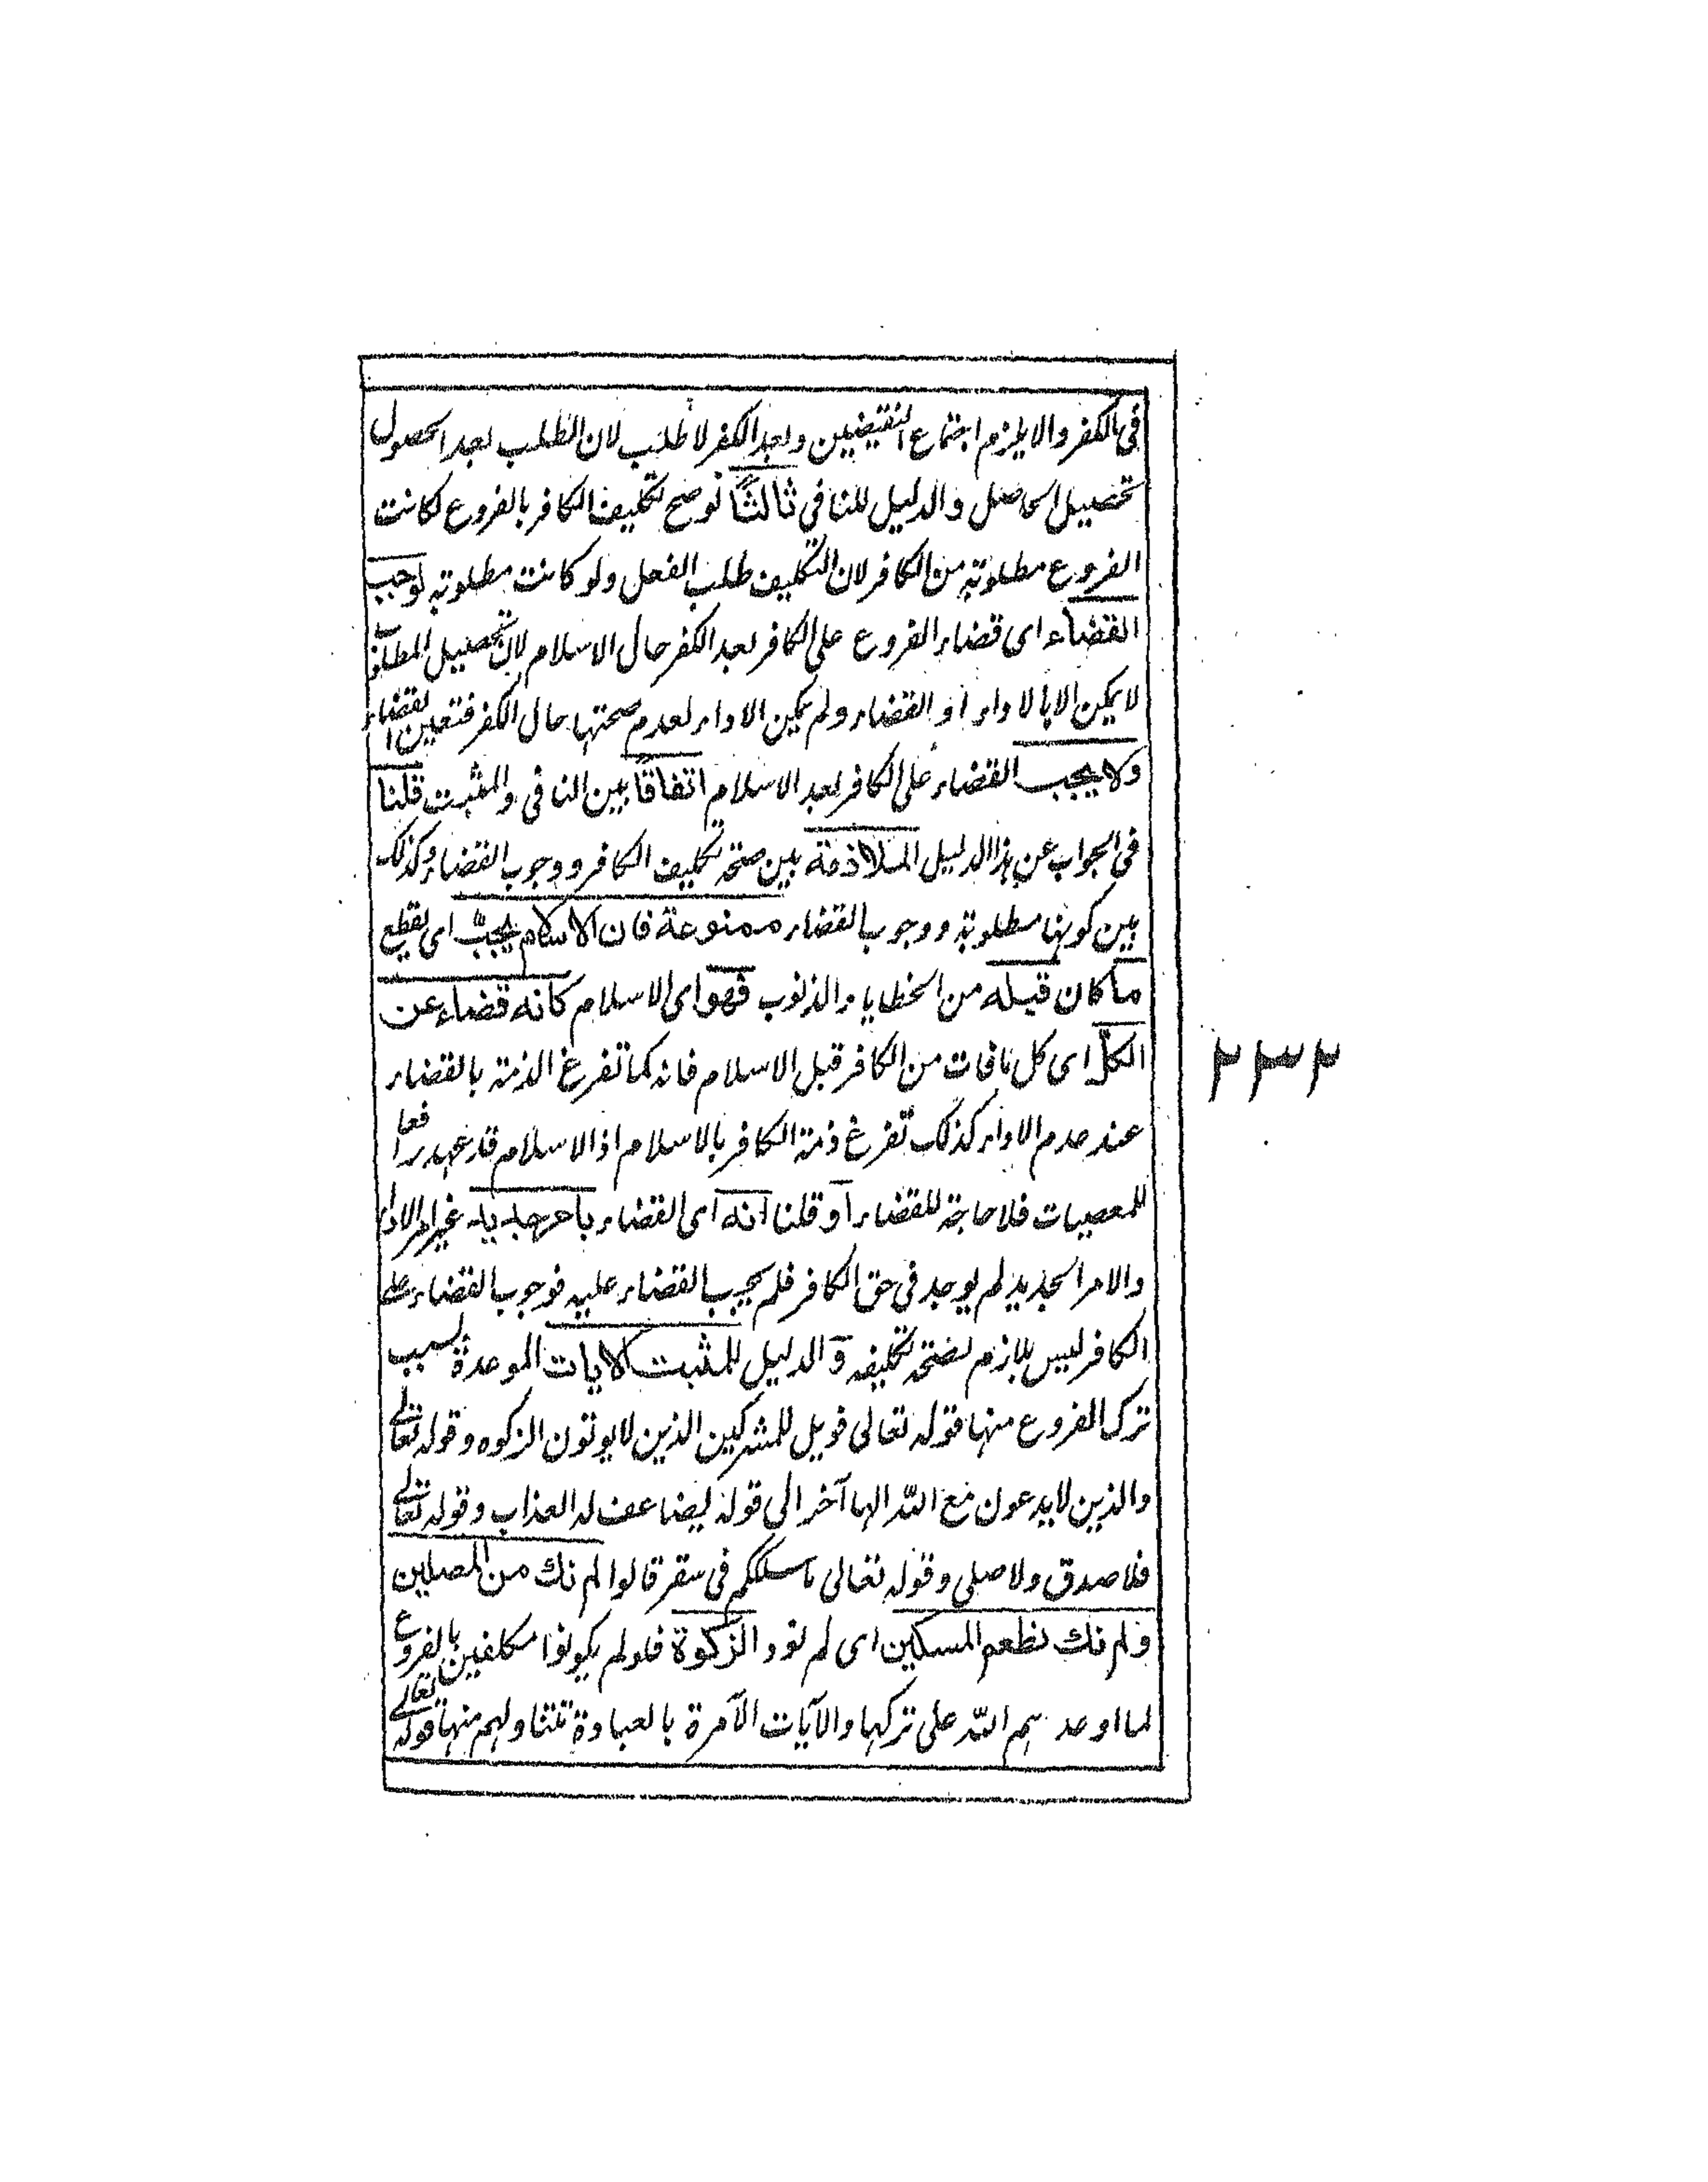 في الكفر والا يلزم اجتماع النقيضين وبعد الكفر لا طلب لان الطلب بعد الحصول
تحصيل الحاصل والدليل للنافي ثالثاً لو صح تكليف الكافر بالفروع لكانت
الفروع مطلوبة من الكافر لان التكليف طلب الفعل ولو كانت مطلوبة لوجب
القضاء اى قضاء الفروع على الكافر بعد الكفر حال الاسلام لان تحصيل المطلوب
لا يمكن الا بالاداء او القضاء ولم يمكن الاداء لعدم صحتها حال الكفر فتعين القضاء
ولا يجب القضاء على الكافر بعد الاسلام اتفاقاً بين النافى والمثبت قلنا
في الجواب عن هذا الدليل الملازمة بين صحة تكليف الكافر ووجوب القضاء وكذلك
بين كونها مطلوبة ووجوب القضاء ممنوعة فان الاسلام يجبّ اى يقطع
ما كان قبله من الخطايا والذنوب فهو اى الاسلام كانه قضاء عن
الكلّ اى كل ما فات من الكافر قبل الاسلام فانه كما تفرغ الذمة بالقضاء
عند عدم الاداء كذلك تفرغ ذمة الكافر بالاسلام اذ الاسلام قد عهد رافعا
للمعصيات فلا حاجة للقضاء او قلنا انه اى القضاء بامر جديد غير امر الاداء
والامر الجديد لم يوجد فى حق الكافر فلم يجب القضاء عليه فوجوب القضاء على
الكافر ليس بلازم لصحة تكليفه و الدليل للمثبت الايات الموعدة بسبب
ترك الفروع منها قوله تعالى فويل للمشركين الذين لا يوتون الزكوه وقوله تعالى
والذين لا يدعون مع الله الها آخر الى قوله يضاعف له العذاب وقوله تعالى
فلا صدق ولا صلى وقوله تعالى ما سلككم فى سقر قالوا لم نك من المصلين
ولم نك نطعم المسكين اى لم نود الزكوة فلو لم يكونوا مكلفين بالفروع
لما اوعد هم الله على تركها والآيات الآمرة بالعبادة تتناولهم منها قوله تعالى
٢٣٢